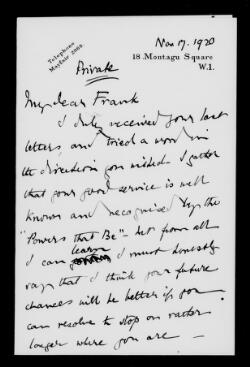 Nov 17. 1920
Telephone
Mayfair 2069.
18, Montagu Square
W.1.
Private
My dear Frank
I duly received your last
letters, and tried a word in
the direction you wished. I gather
that your good service is well
known and recognised by the
"Powers that Be" – but from all
I can learn I must honestly
say that I think your future
chances will be better if you
can resolve to stop on rather
longer where you are —